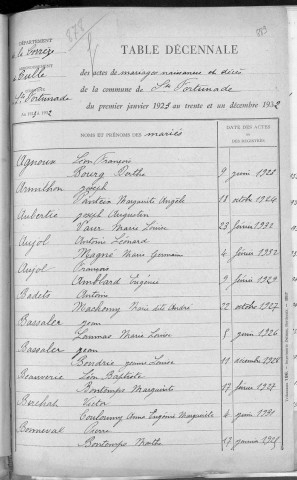 DÉPARTEMENT
la Corrèze
Tulle
Ste Fortunade
TABLE DÉCENNALE
des actes de mariages naissances et décès
de la commune de Ste Fortunade
du premier janvier 1923 au trente et un décembre 1932
NOMS ET PRÉNOMS DES mariés
DATE DES ACTES
Agnoux Léon François
Bourg Berthe 9 juin 1928
Armilhon Joseph
Marguerite Angèle 18 octobre 1924
Aubertie Joseph Augustin
Marie Louise 23 février 1930
Aujol Antoine Léonard
Magne Marie Germaine 4 février 1932
Aujol François
Amblard Eugénie 9 février 1929
Badets Antoine
Machomy Marie dite André 22 octobre 1927
Bassaler Jean
Marie Louise 5 juin 1926
Bassaler Jean
Bondrie Jeanne Louise 11 décembre 1926
Beauverie Léon Baptiste
Bontemps Marguerite 17 février 1927
Berchat Victor
Anna Eugénie Marguerite 4 juin 1931
Bonneval Pierre
Bontemps Marthe 17 janvier 1925